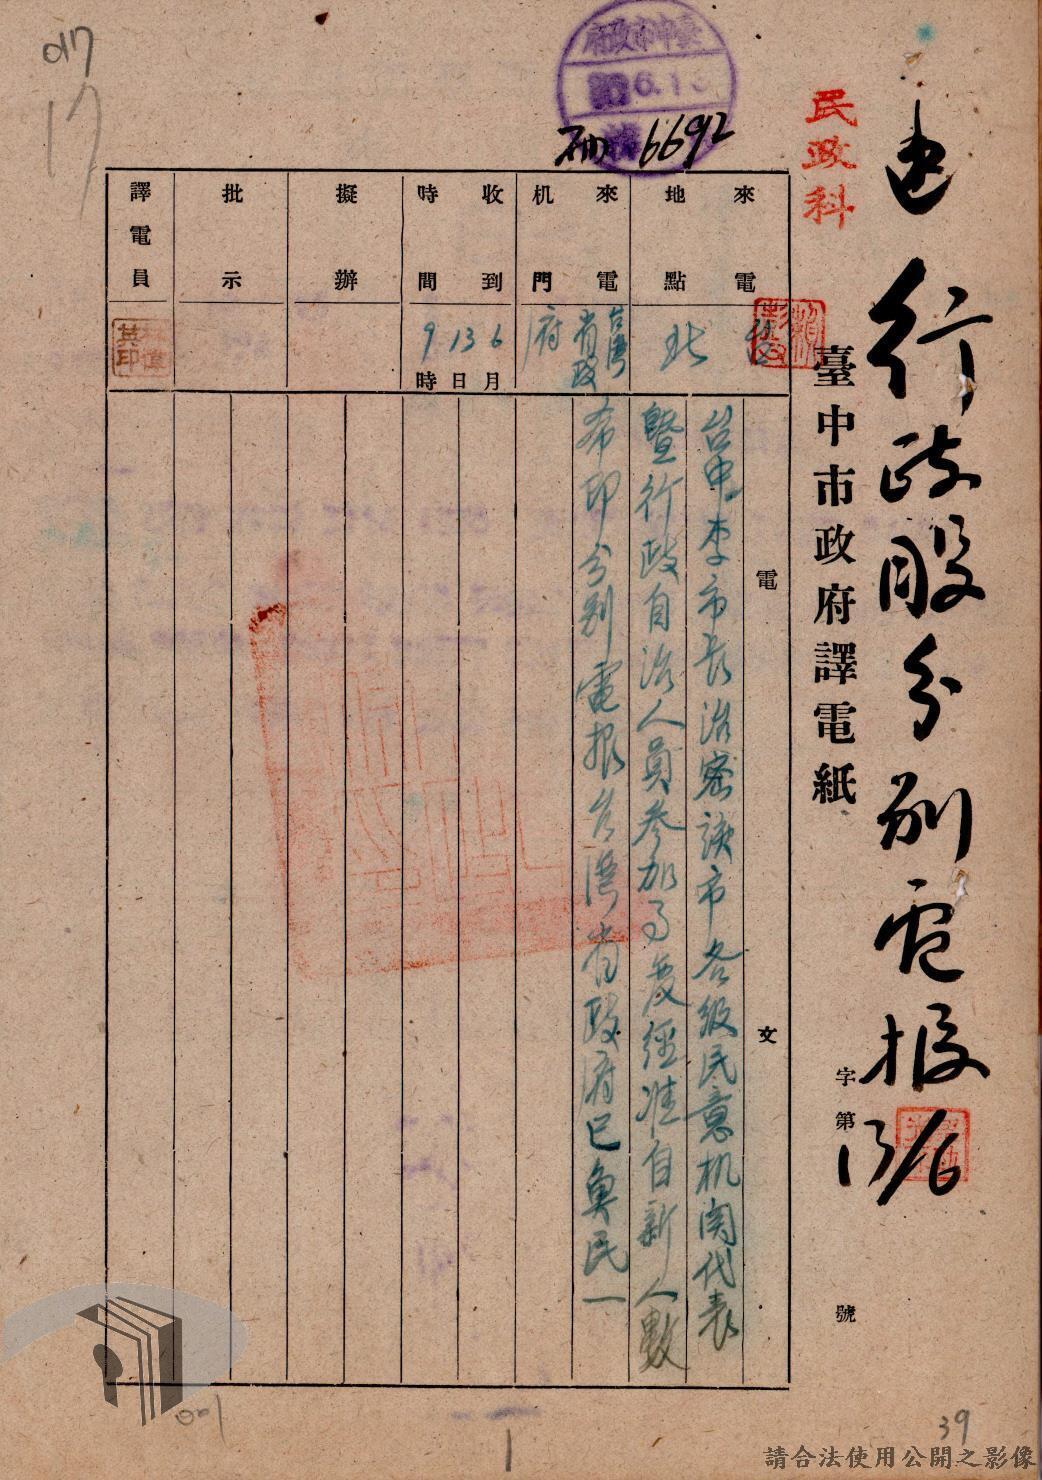 速行政股分別電報
13/6
民政科
臺中市政府譯電紙
字第 號
臺中市政府
36.6.13
6692
來電地點
台北
來電机門
台灣省政府
收到時間
6月13日9時
擬辦
批示
譯電員
電文
台中李市長治密該市各級民意机関代表
暨行政自治人員參加事变經准自新人數
希即分別電报台灣省政府巳魚民一
017
17
001
1
39
請合法使用公開之影像